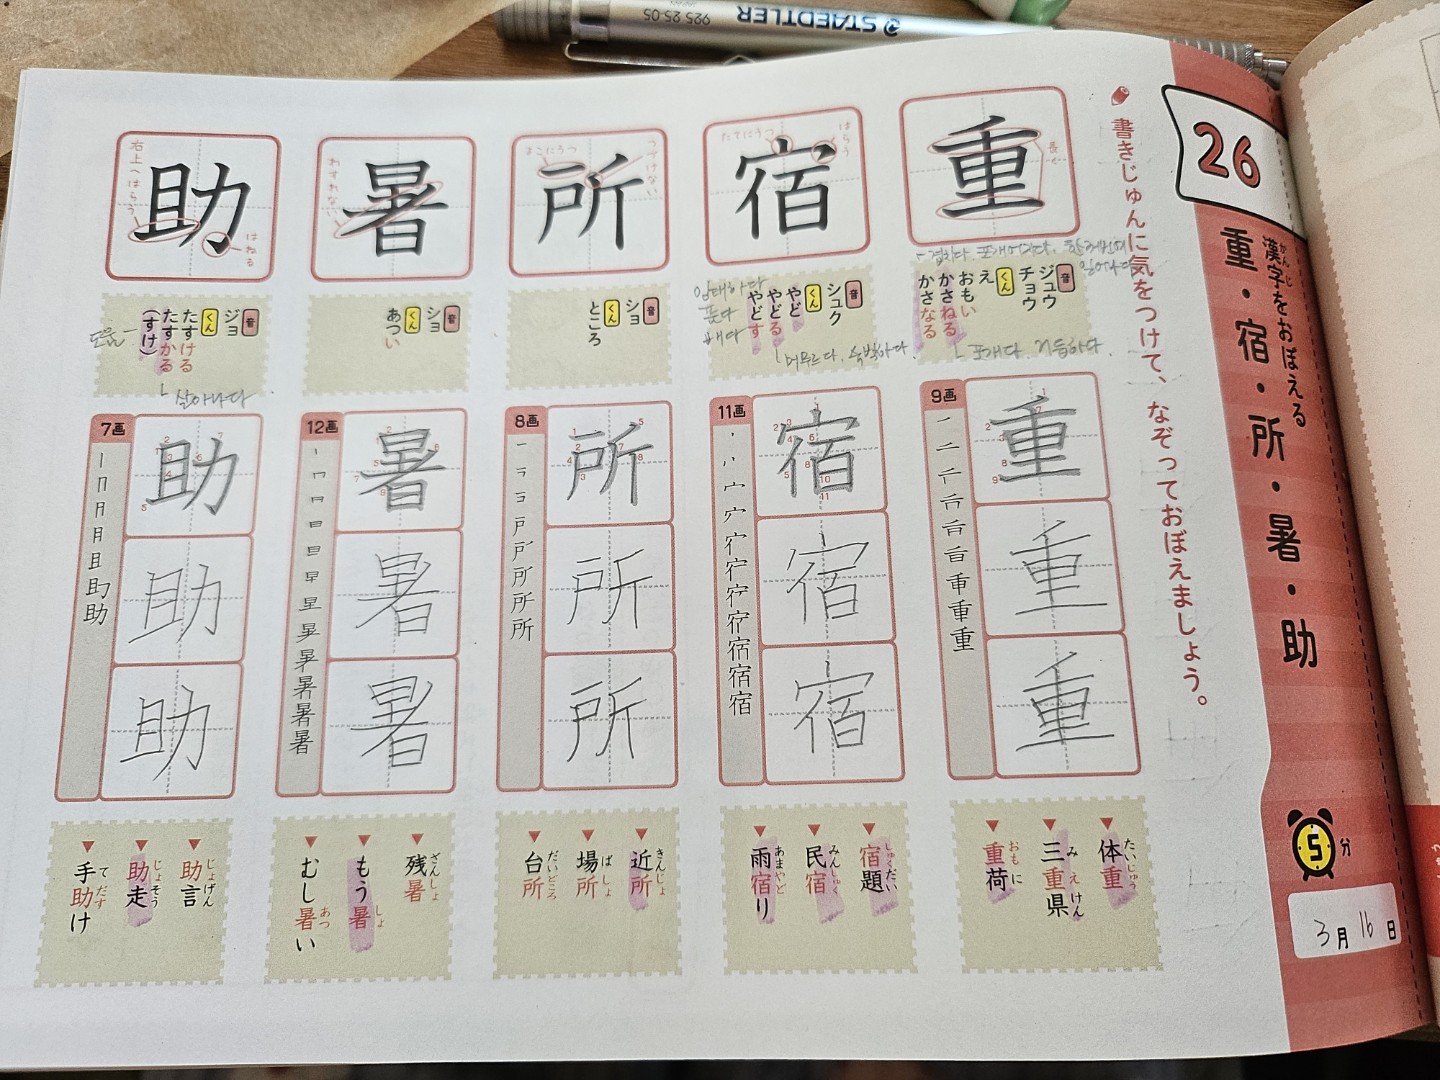 STAEDTLER
925 25-05
26
漢字をおぼえる
かんじ
重・宿・所・暑・助
5分
3月16日
書きじゅんに気をつけて、なぞっておぼえましょう。
重
長く
音
ジュウ
チョウ
くん
え
おもい
かさねる
かさなる
포개다
9画
重
重
重
体重
たいじゅう
三重県
みえけん
重荷
おもに
宿
たてにうつ
はらう
音
シュク
くん
やど
やどる
やどす
임대하다
품다
머무르다, 숙박하다.
11画
宿
宿
宿
宿題
しゅくだい
民宿
みんしゅく
雨宿り
あまやど
所
よこにうつ
つけない
音
ショ
くん
ところ
8画
所
所
所
近所
きんじょ
場所
ばしょ
台所
だいどころ
暑
わすれない
音
ショ
くん
あつい
12画
暑
暑
暑
残暑
ざんしょ
もう暑
しょ
むし暑い
あつ
助
右上へはらう
はねる
音
ジョ
くん
たすける
たすかる
(すけ)
살아나다
7画
助
助
助
助言
じょげん
助走
じょそう
手助け
てだす